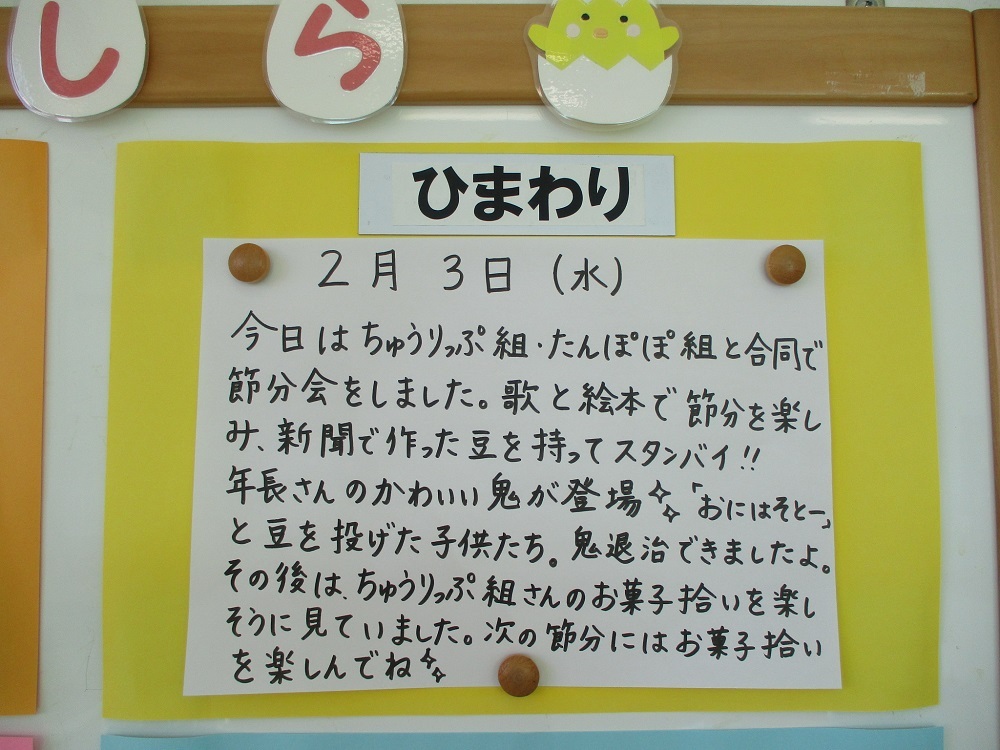 しら
ひまわり
2月 3日 (水)
今日はちゅうりっぷ組・たんぽぽ組と合同で
節分会をしました。歌と絵本で節分を楽し
み、新聞で作った豆を持ってスタンバイ!!
年長さんのかわいい鬼が登場✧✧「おにはそとー」
と豆を投げた子供たち。鬼退治できましたよ。
その後は、ちゅうりっぷ組さんのお菓子拾いを楽し
そうに見ていました。次の節分にはお菓子拾い
を楽しんでね✧✧